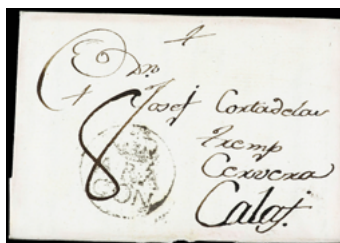 Dn.
Josef Cortadelas
Tremp
Cervera
Calaf.
8